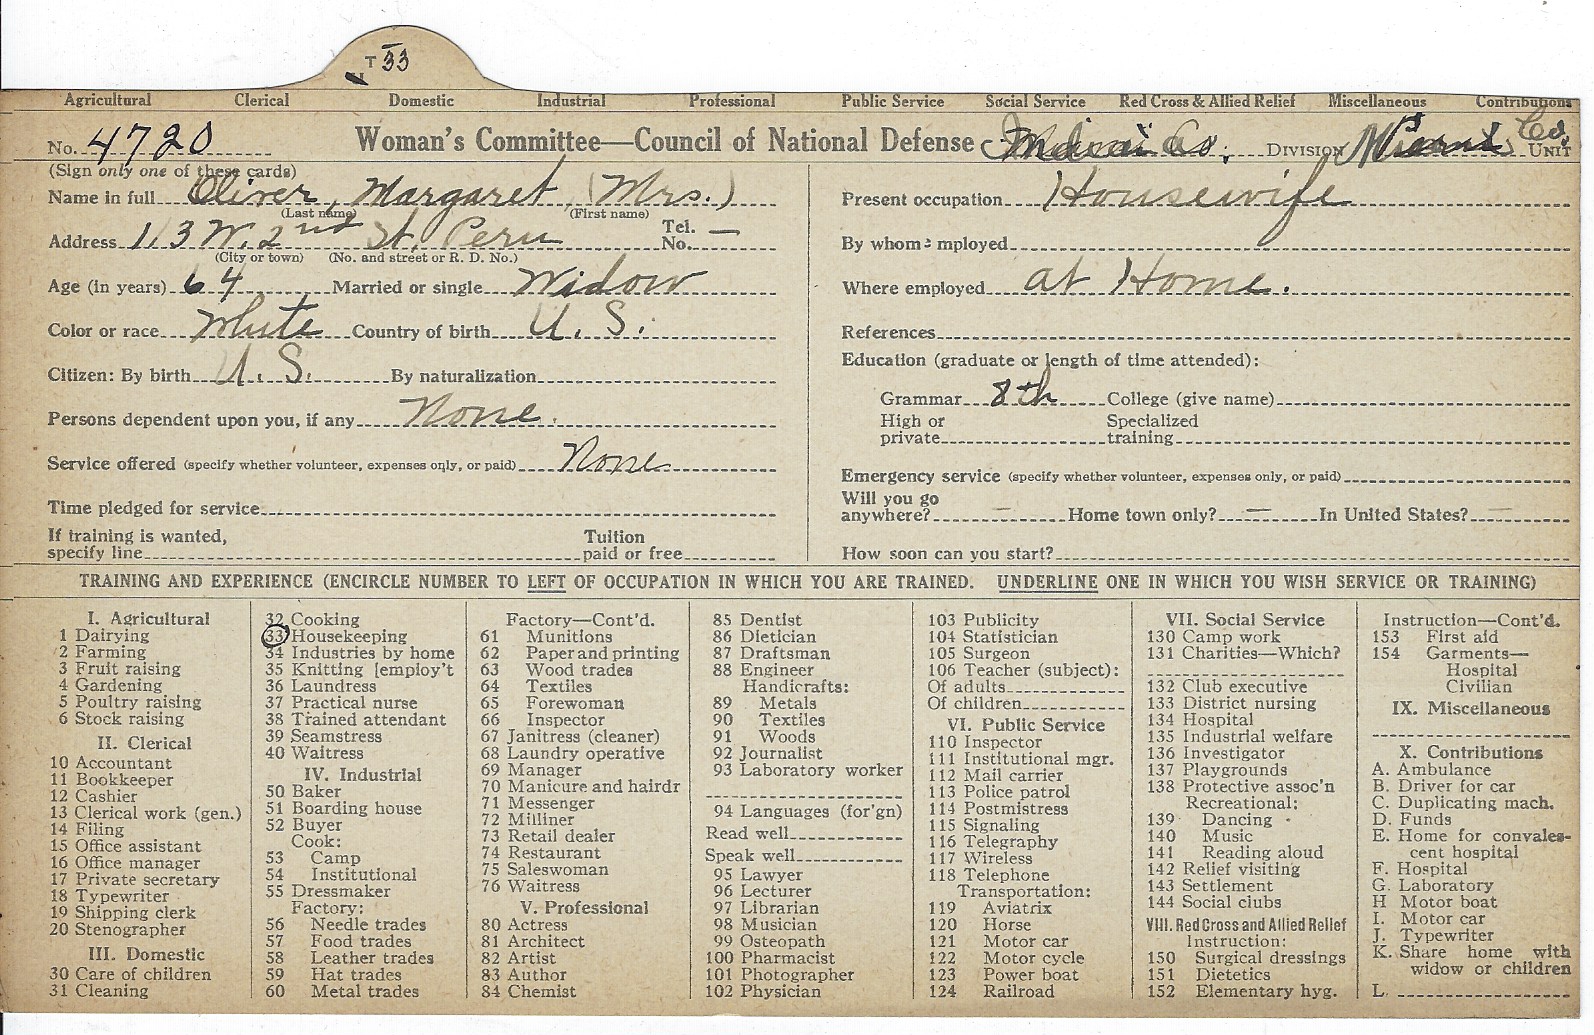 T 33
Agricultural Clerical Domestic Industrial Professional Public Service Social Service Red Cross & Allied Relief Miscellaneous Contributions
No. 4720 Woman's Committee—Council of National Defense Co. DIVISION Co. UNIT
(Sign only one of these cards)
Name in full Oliver, Margaret (Mrs.)
(Last name) (First name)
Address 113 W. 2nd St. Peru Tel. No. —
(City or town) (No. and street or R. D. No.)
Age (in years) 64 Married or single Widow
Color or race White Country of birth U. S.
Citizen: By birth U. S. By naturalization
Persons dependent upon you, if any None.
Service offered (specify whether volunteer, expenses only, or paid) None
Time pledged for service
If training is wanted, specify line Tuition paid or free
Present occupation Housewife
By whom employed
Where employed at Home.
References
Education (graduate or length of time attended):
Grammar 8th College (give name)
High or private Specialized training
Emergency service (specify whether volunteer, expenses only, or paid)
Will you go anywhere? — Home town only? — In United States? —
How soon can you start?
TRAINING AND EXPERIENCE (ENCIRCLE NUMBER TO LEFT OF OCCUPATION IN WHICH YOU ARE TRAINED. UNDERLINE ONE IN WHICH YOU WISH SERVICE OR TRAINING)
I. Agricultural
1 Dairying
2 Farming
3 Fruit raising
4 Gardening
5 Poultry raising
6 Stock raising
II. Clerical
10 Accountant
11 Bookkeeper
12 Cashier
13 Clerical work (gen.)
14 Filing
15 Office assistant
16 Office manager
17 Private secretary
18 Typewriter
19 Shipping clerk
20 Stenographer
III. Domestic
30 Care of children
31 Cleaning
32 Cooking
33 Housekeeping
34 Industries by home
35 Knitting [employ't
36 Laundress
37 Practical nurse
38 Trained attendant
39 Seamstress
40 Waitress
IV. Industrial
50 Baker
51 Boarding house
52 Buyer
Cook:
53 Camp
54 Institutional
55 Dressmaker
Factory:
56 Needle trades
57 Food trades
58 Leather trades
59 Hat trades
60 Metal trades
Factory—Cont'd.
61 Munitions
62 Paper and printing
63 Wood trades
64 Textiles
65 Forewoman
66 Inspector
67 Janitress (cleaner)
68 Laundry operative
69 Manager
70 Manicure and hairdr
71 Messenger
72 Milliner
73 Retail dealer
74 Restaurant
75 Saleswoman
76 Waitress
V. Professional
80 Actress
81 Architect
82 Artist
83 Author
84 Chemist
85 Dentist
86 Dietician
87 Draftsman
88 Engineer
Handicrafts:
89 Metals
90 Textiles
91 Woods
92 Journalist
93 Laboratory worker
94 Languages (for'gn)
Read well
Speak well
95 Lawyer
96 Lecturer
97 Librarian
98 Musician
99 Osteopath
100 Pharmacist
101 Photographer
102 Physician
103 Publicity
104 Statistician
105 Surgeon
106 Teacher (subject):
Of adults
Of children
VI. Public Service
110 Inspector
111 Institutional mgr.
112 Mail carrier
113 Police patrol
114 Postmistress
115 Signaling
116 Telegraphy
117 Wireless
118 Telephone
Transportation:
119 Aviatrix
120 Horse
121 Motor car
122 Motor cycle
123 Power boat
124 Railroad
VII. Social Service
130 Camp work
131 Charities—Which?
132 Club executive
133 District nursing
134 Hospital
135 Industrial welfare
136 Investigator
137 Playgrounds
138 Protective assoc'n
Recreational:
139 Dancing
140 Music
141 Reading aloud
142 Relief visiting
143 Settlement
144 Social clubs
VIII. Red Cross and Allied Relief
Instruction:
150 Surgical dressings
151 Dietetics
152 Elementary hyg.
Instruction—Cont'd.
153 First aid
154 Garments—
Hospital
Civilian
IX. Miscellaneous
X. Contributions
A. Ambulance
B. Driver for car
C. Duplicating mach.
D. Funds
E. Home for convales-
cent hospital
F. Hospital
G. Laboratory
H Motor boat
I. Motor car
J. Typewriter
K. Share home with
widow or children
L.